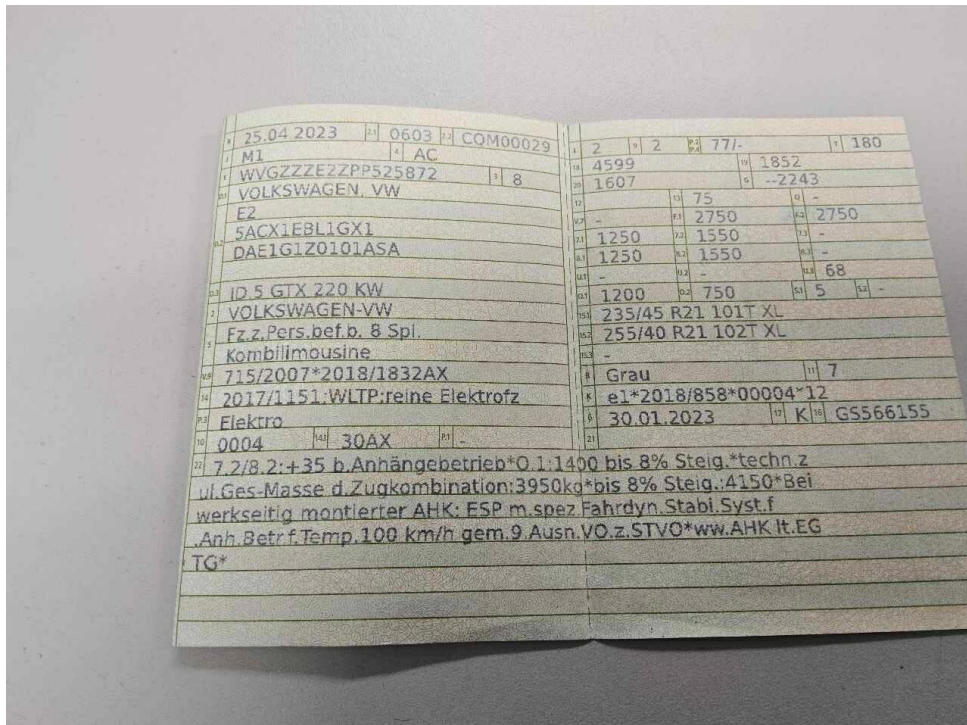 B 25.04 2023 2.1 0603 2.2 COM00029
J M1 4 AC
E WVGZZZE2ZPP525872 3 8
D.1 VOLKSWAGEN, VW
E2
D.2 5ACX1EBL1GX1
DAE1G1Z0101ASA
D.3 ID.5 GTX 220 KW
2 VOLKSWAGEN-VW
5 Fz.z.Pers.bef.b. 8 Spl.
Kombilimousine
V.9 715/2007*2018/1832AX
14 2017/1151;WLTP;reine Elektrofz
P.3 Elektro
10 0004 14.1 30AX P.1 -
L 2 9 2 P.2 P.4 77/- T 180
18 4599 19 1852
20 1607 G --2243
12 13 75 Q -
V.7 - F.1 2750 F.2 2750
7.1 1250 7.2 1550 7.3 -
8.1 1250 8.2 1550 8.3 -
U.1 - U.2 - U.3 68
O.1 1200 O.2 750 S.1 5 S.2 -
15.1 235/45 R21 101T XL
15.2 255/40 R21 102T XL
15.3 -
R Grau 11 7
K e1*2018/858*00004*12
6 30.01.2023 17 K 16 GS566155
21
22 7.2/8.2:+35 b.Anhängebetrieb*O.1:1400 bis 8% Steig.*techn.z
ul.Ges-Masse d.Zugkombination:3950kg*bis 8% Steig.:4150*Bei
werkseitig montierter AHK: ESP m.spez.Fahrdyn.Stabi.Syst.f
.Anh.Betr.f.Temp.100 km/h gem.9.Ausn.VO.z.STVO*ww.AHK lt.EG
TG*